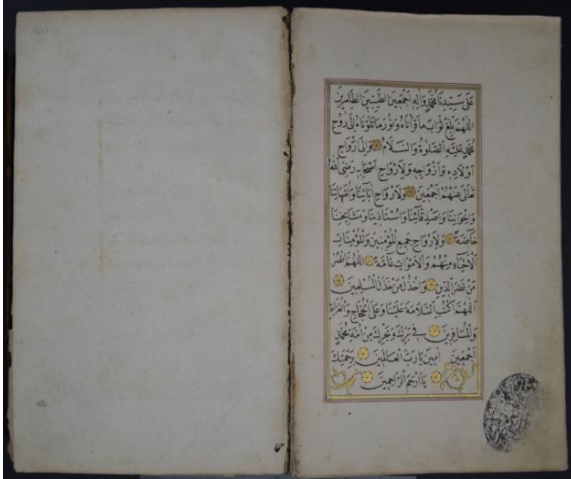 عَلٰى سَيِّدِنَا مُحَمَّدٍ وَاٰلِهِ اَجْمَعِينَ الطَّيِّبِينَ الطَّاهِرِينَ
اَللّٰهُمَّ بَلِّغْ ثَوَابَ مَا قَرَأْنَاهُ وَنُورَ مَا تَلَوْنَاهُ اِلٰى رُوحِ
مُحَمَّدٍ عَلَيْهِ الصَّلٰوةُ وَالسَّلَامُ وَاِلٰى اَرْوَاحِ
اَوْلَادِهِ وَاَزْوَاجِهِ وَلِاَرْوَاحِ اَصْحَابِهِ رَضِيَ اللّٰهُ
تَعَالٰى عَنْهُمْ اَجْمَعِينَ وَلِاَرْوَاحِ اٰبَائِنَا وَاُمَّهَاتِنَا
وَاِخْوَانِنَا وَاَصْدِقَائِنَا وَاُسْتَاذِينَا وَمَشَايِخِنَا
خَاصَّةً وَلِاَرْوَاحِ جَمِيعِ الْمُؤْمِنِينَ وَالْمُؤْمِنَاتِ
اَلْاَحْيَاءِ مِنْهُمْ وَالْاَمْوَاتِ عَامَّةً اَللّٰهُمَّ انْصُرْ
مَنْ نَصَرَ الدِّينَ وَاخْذُلْ مَنْ خَذَلَ الْمُسْلِمِينَ
اَللّٰهُمَّ اكْتُبِ السَّلَامَةَ عَلَيْنَا وَعَلَى الْحُجَّاجِ وَالْغُزَاةِ
وَالْمُسَافِرِينَ فِي بَرِّكَ وَبَحْرِكَ مِنْ اُمَّةِ مُحَمَّدٍ
اَجْمَعِينَ اٰمِينَ يَا رَبَّ الْعَالَمِينَ بِرَحْمَتِكَ
يَا اَرْحَمَ الرَّاحِمِينَ